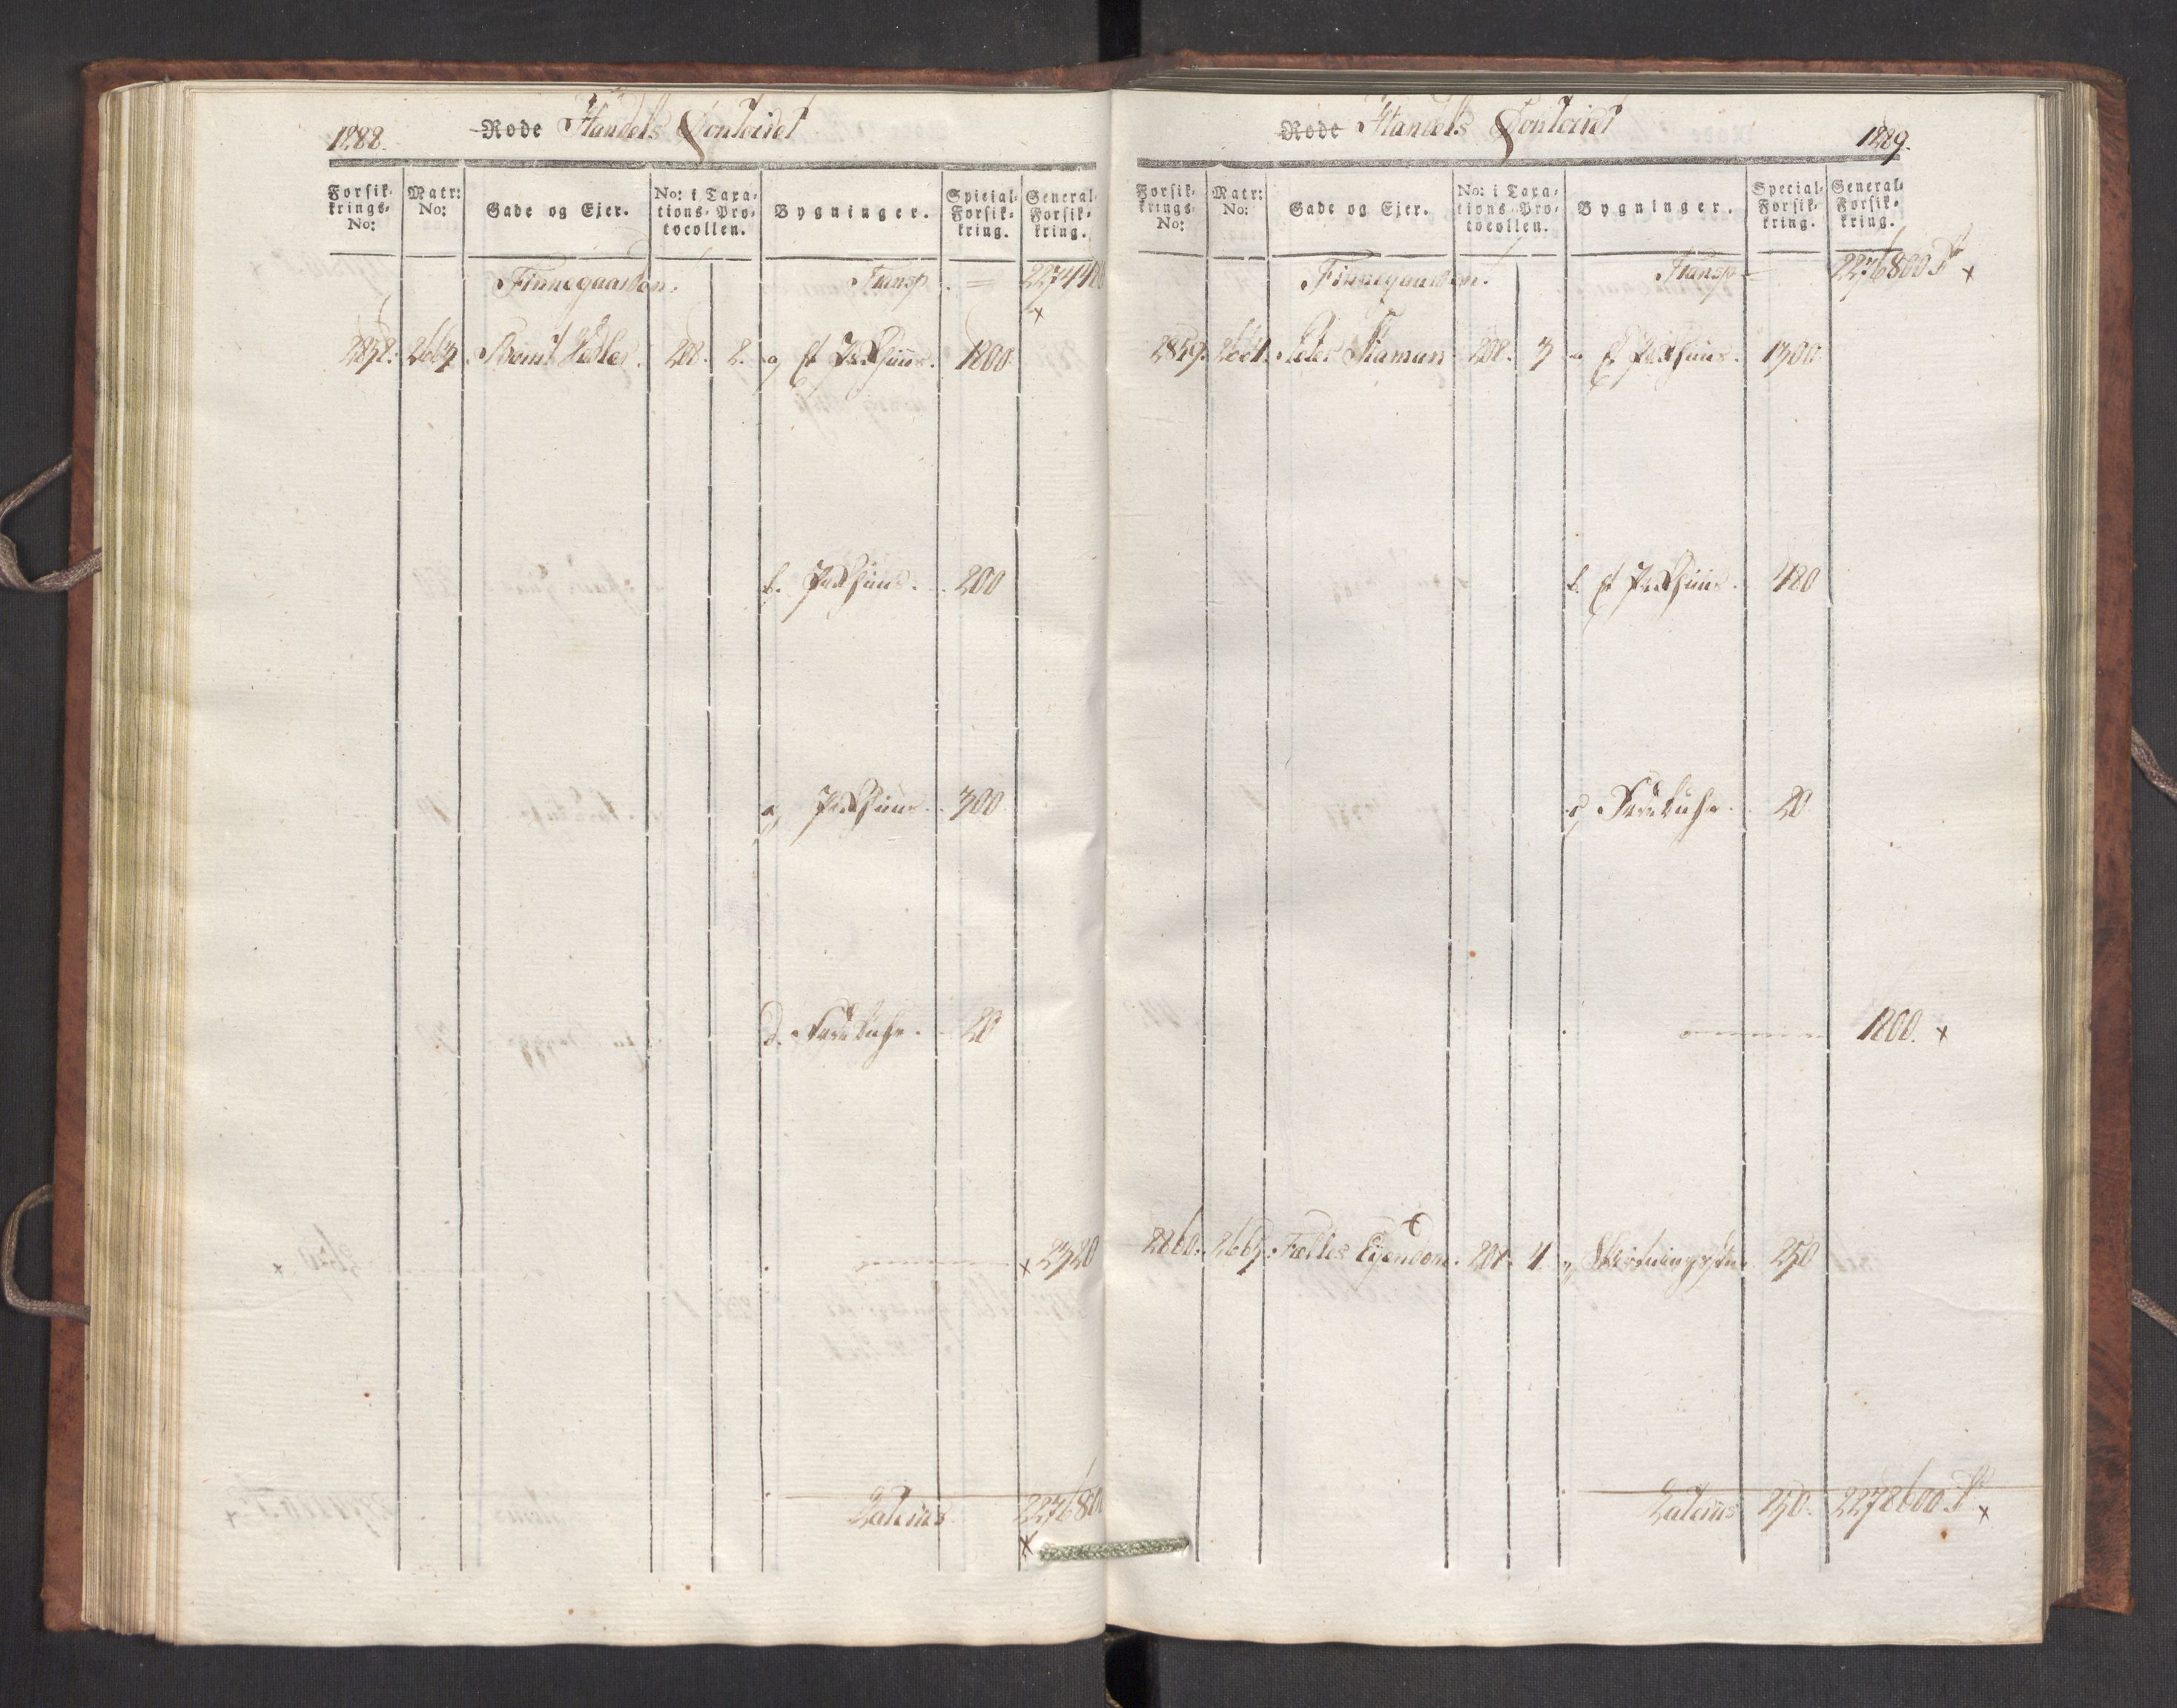 1288. Rode Handels Contoiret
Forsik- krings- No: Matr: No: Gade og Ejer. No: i Taxa- tions-Pro- tocollen. Bygninger. Special- Forsik- kring. General- Forsik- kring.
Finnegaarden. Transp. = 227448
x
2858. 2663 208. 2. a, et Pakhuus. 1800.
b. Pakhuus. 200
c, Pakhuus. 300
d. 20
x 2320
Lateris 227680
x
Rode Handels Contoiret 1289.
Forsik- krings- No: Matr: No: Gade og Ejer. No: i Taxa- tions-Pro- tocollen. Bygninger. Special- Forsik- kring. General- Forsik- kring.
Finnegaarden. Transp = 2276800 x
2859. 2664. Peder 208. 3 a et Pakhuus. 1300
b. et Pakhuus. 480
c, 20
1800. x
2860. 2665. Fælles Eyendom. 208. 4 250
Lateris 250. 2278600 x